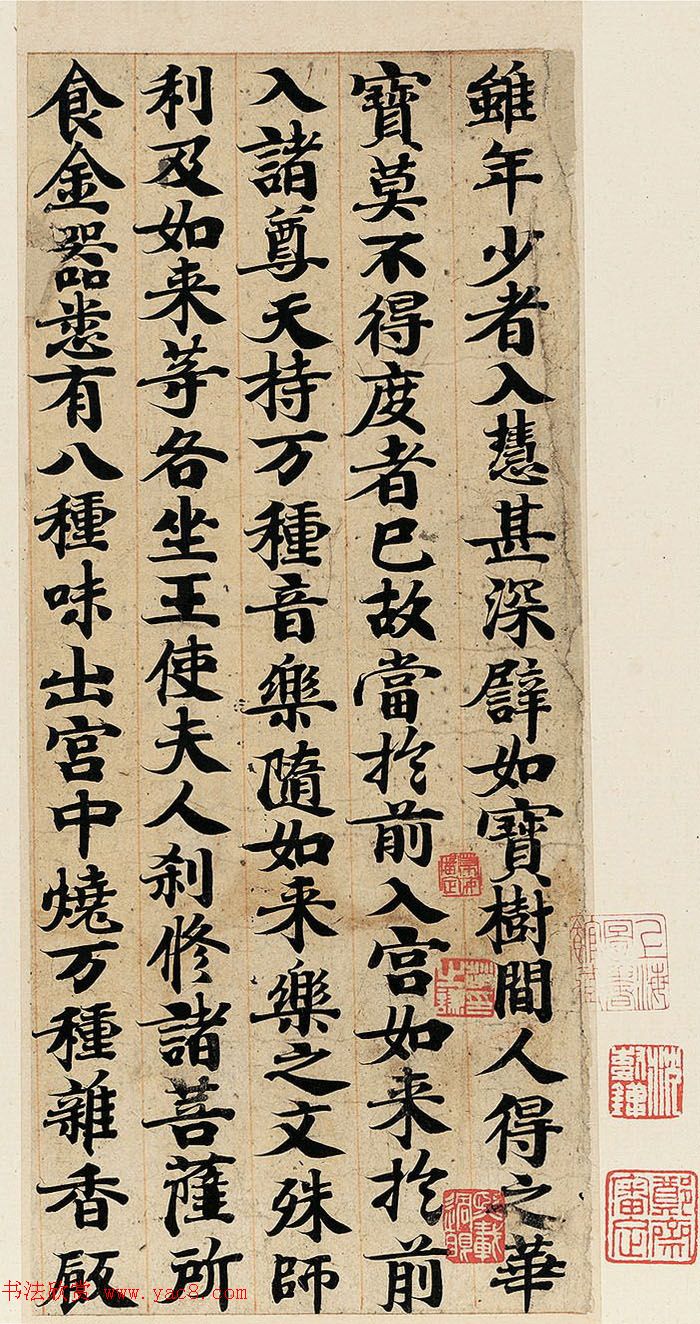 雖年少者入慧甚深譬如寶樹間人得之華
寶莫不得度者已故當於前入宮如来於前
入諸尊天持万種音樂隨如来樂之文殊師
利及如来等各坐王使夫人刹修諸菩薩所
食金器悉有八種味出宮中燒万種雜香殿
書法欣赏 www.yac8.com